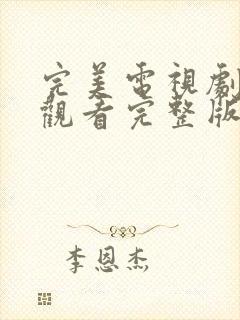 完美電視劇
觀看完整版
李恩杰